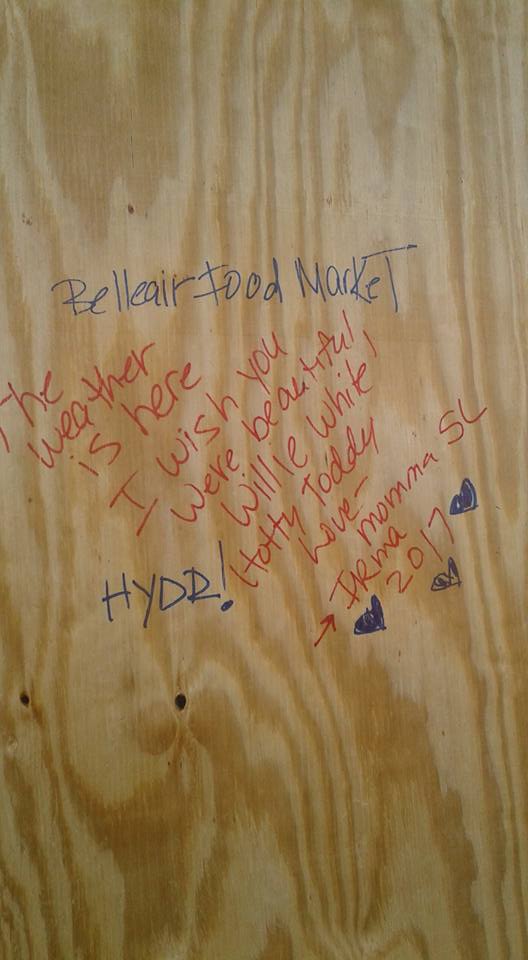 Belleair Food Market
The
weather
is here
I wish you
were beautiful,
Willie White!
Hotty Toddy
Love-
momma SL
IRma
2017
HYDR!